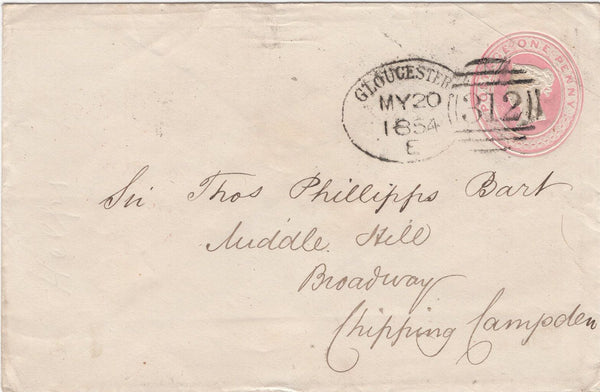 POSTAGE ONE PENNY
GLOUCESTER
MY 20
1854
E
312
Sir Thos Phillipps Bart
Middle Hill
Broadway
Chipping Campden